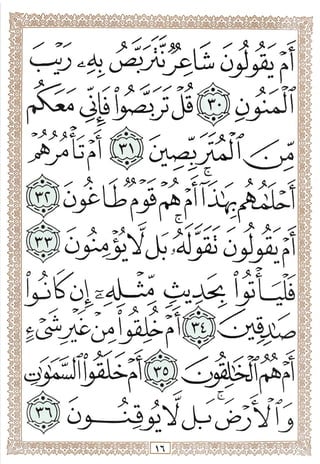 أَمْ يَقُولُونَ شَاعِرٌ نَّتَرَبَّصُ بِهِۦ رَيْبَ
ٱلْمَنُونِ ٣٠ قُلْ تَرَبَّصُوا۟ فَإِنِّى مَعَكُم
مِّنَ ٱلْمُتَرَبِّصِينَ ٣١ أَمْ تَأْمُرُهُمْ
أَحْلَٰمُهُم بِهَٰذَآ ۚ أَمْ هُمْ قَوْمٌ طَاغُونَ ٣٢
أَمْ يَقُولُونَ تَقَوَّلَهُۥ ۚ بَل لَّا يُؤْمِنُونَ ٣٣
فَلْيَأْتُوا۟ بِحَدِيثٍ مِّثْلِهِۦٓ إِن كَانُوا۟
صَٰدِقِينَ ٣٤ أَمْ خُلِقُوا۟ مِنْ غَيْرِ شَىْءٍ
أَمْ هُمُ ٱلْخَٰلِقُونَ ٣٥ أَمْ خَلَقُوا۟ ٱلسَّمَٰوَٰتِ
وَٱلْأَرْضَ ۚ بَل لَّا يُوقِنُونَ ٣٦
١٦